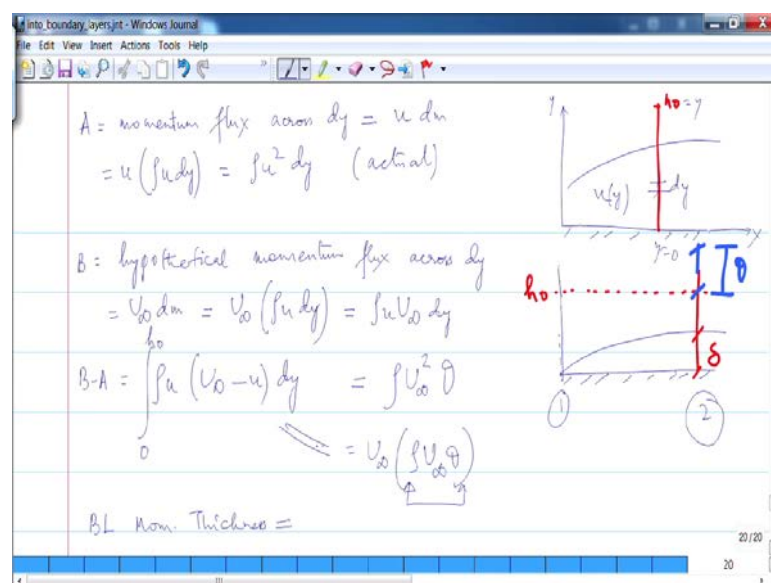 into_boundary_layers.jnt - Windows Journal
File Edit View Insert Actions Tools Help
A = momentum flux across dy = u dm
= u (ρu dy) = ρu² dy (actual)
B = hypothetical momentum flux across dy
= U∞ dm = U∞ (ρu dy) = ρu U∞ dy
B-A = ∫₀^h₀ ρu (U∞ - u) dy = ρU∞² θ
= U∞ (ρU∞θ)
BL Mom. Thickness =
y
h₀ = y
u(y)
dy
y=0
x
h₀
θ
δ
1
2
20/20
20